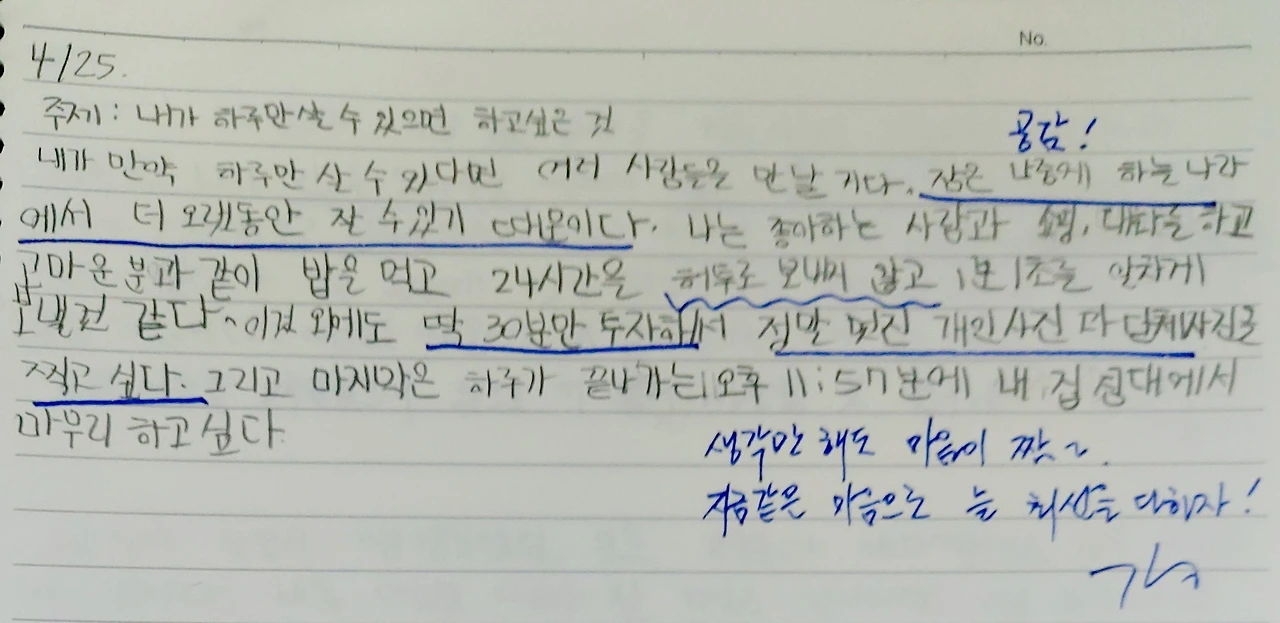 No.
4/25.
주제 : 내가 하루만 살 수 있으면 하고싶은 것
공감!
내가 만약 하루만 살 수 있다면 여러 사람들을 만날 거다. 잠은 나중에 하늘나라
에서 더 오랫동안 잘 수있기 때문이다. 나는 좋아하는 사람과 쇼핑, 대화를 하고
고마운 분과 같이 밥을 먹고 24시간을 허투로 보내지 않고 1분 1초를 알차게
보낼런 같다. 이것 외에도 딱 30분만 투자해서 정말 멋진 개인사진 과 단체사진을
찍고 싶다. 그리고 마지막은 하루가 끝나가는 오후 11:57분에 내 집 침대에서
마무리 하고 싶다
생각만 해도 마음이 짠~.
지금같은 마음으로 늘 최선을 다하자!